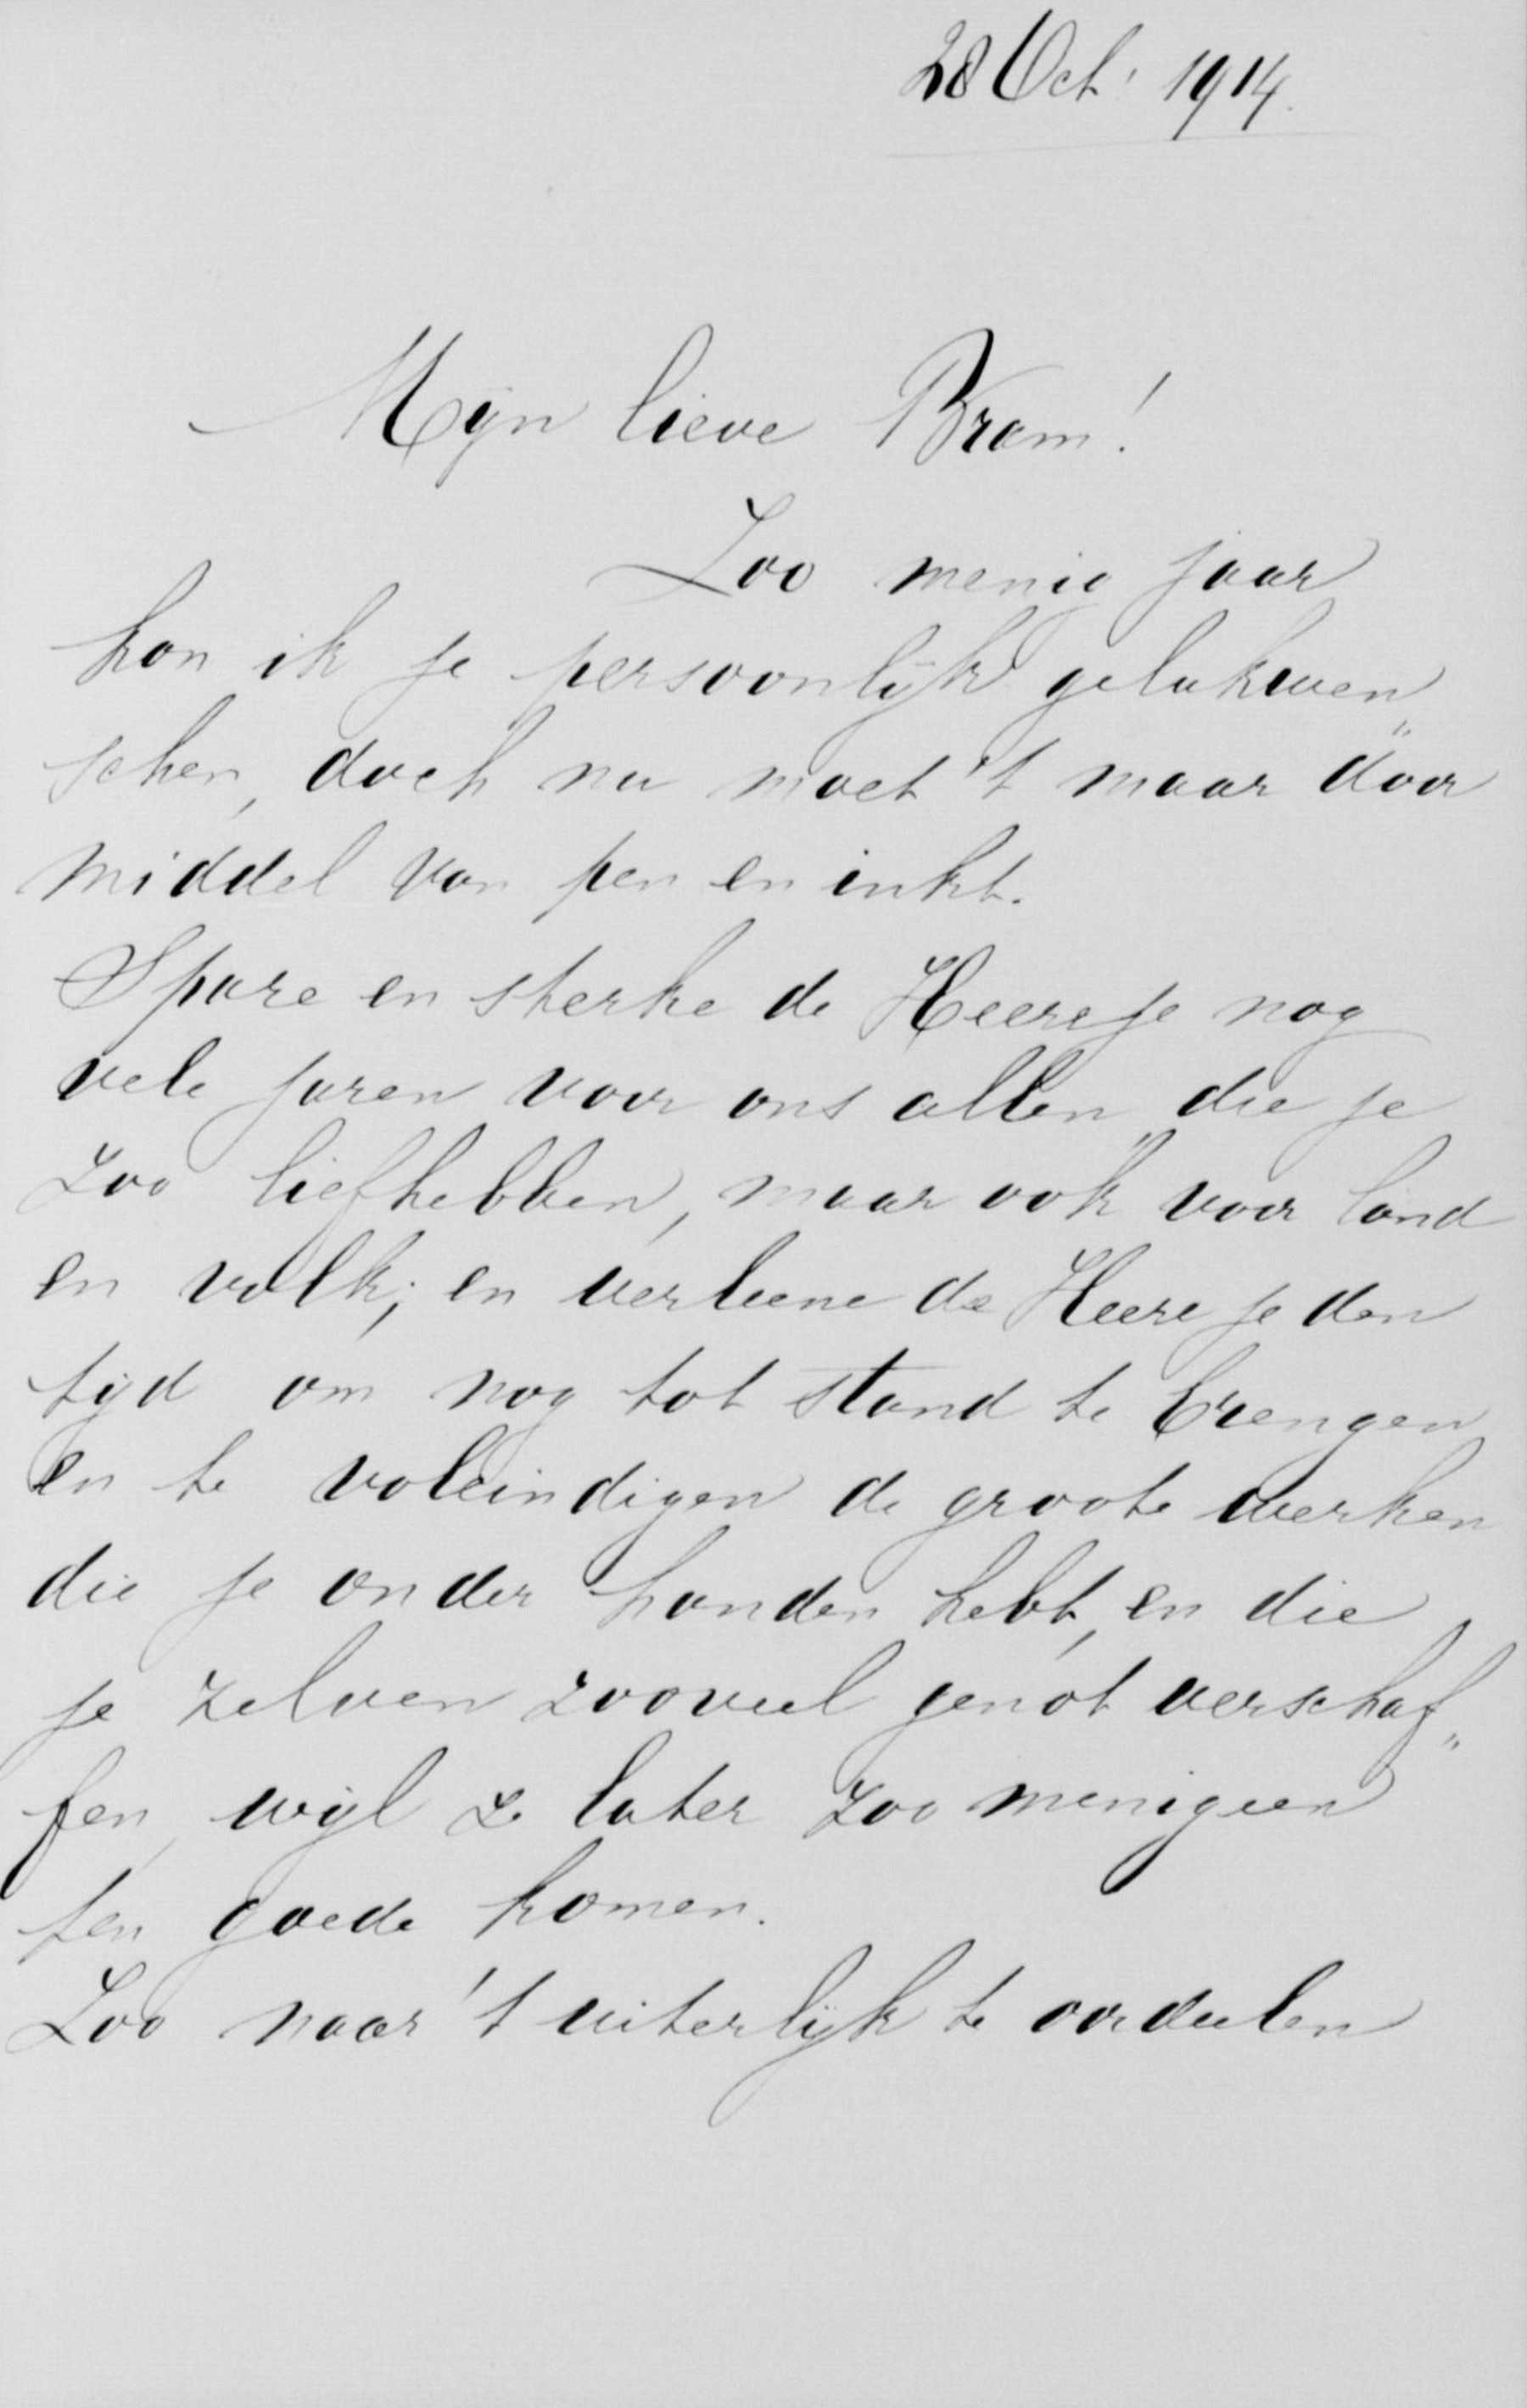 28 Oct. 1914.
Mijn lieve Bram!
Zoo menig jaar
kon ik je persoonlijk gelukwen„
schen, doch nu moet 't maar door
middel van pen en inkt.
Spare en sterke de Heere je nog
vele jaren voor ons allen die je
zoo liefhebben, maar ook voor land
en volk; en verleene de Heere je den
tijd om nog tot stand te brengen
en te voleindigen de groote werken
die je onder handen hebt, en die
je zelven zooveel genot verschaf„
fen, wijl ze later zoo menigeen
ten goede komen.
Zoo naar 't uiterlijk te oordeelen